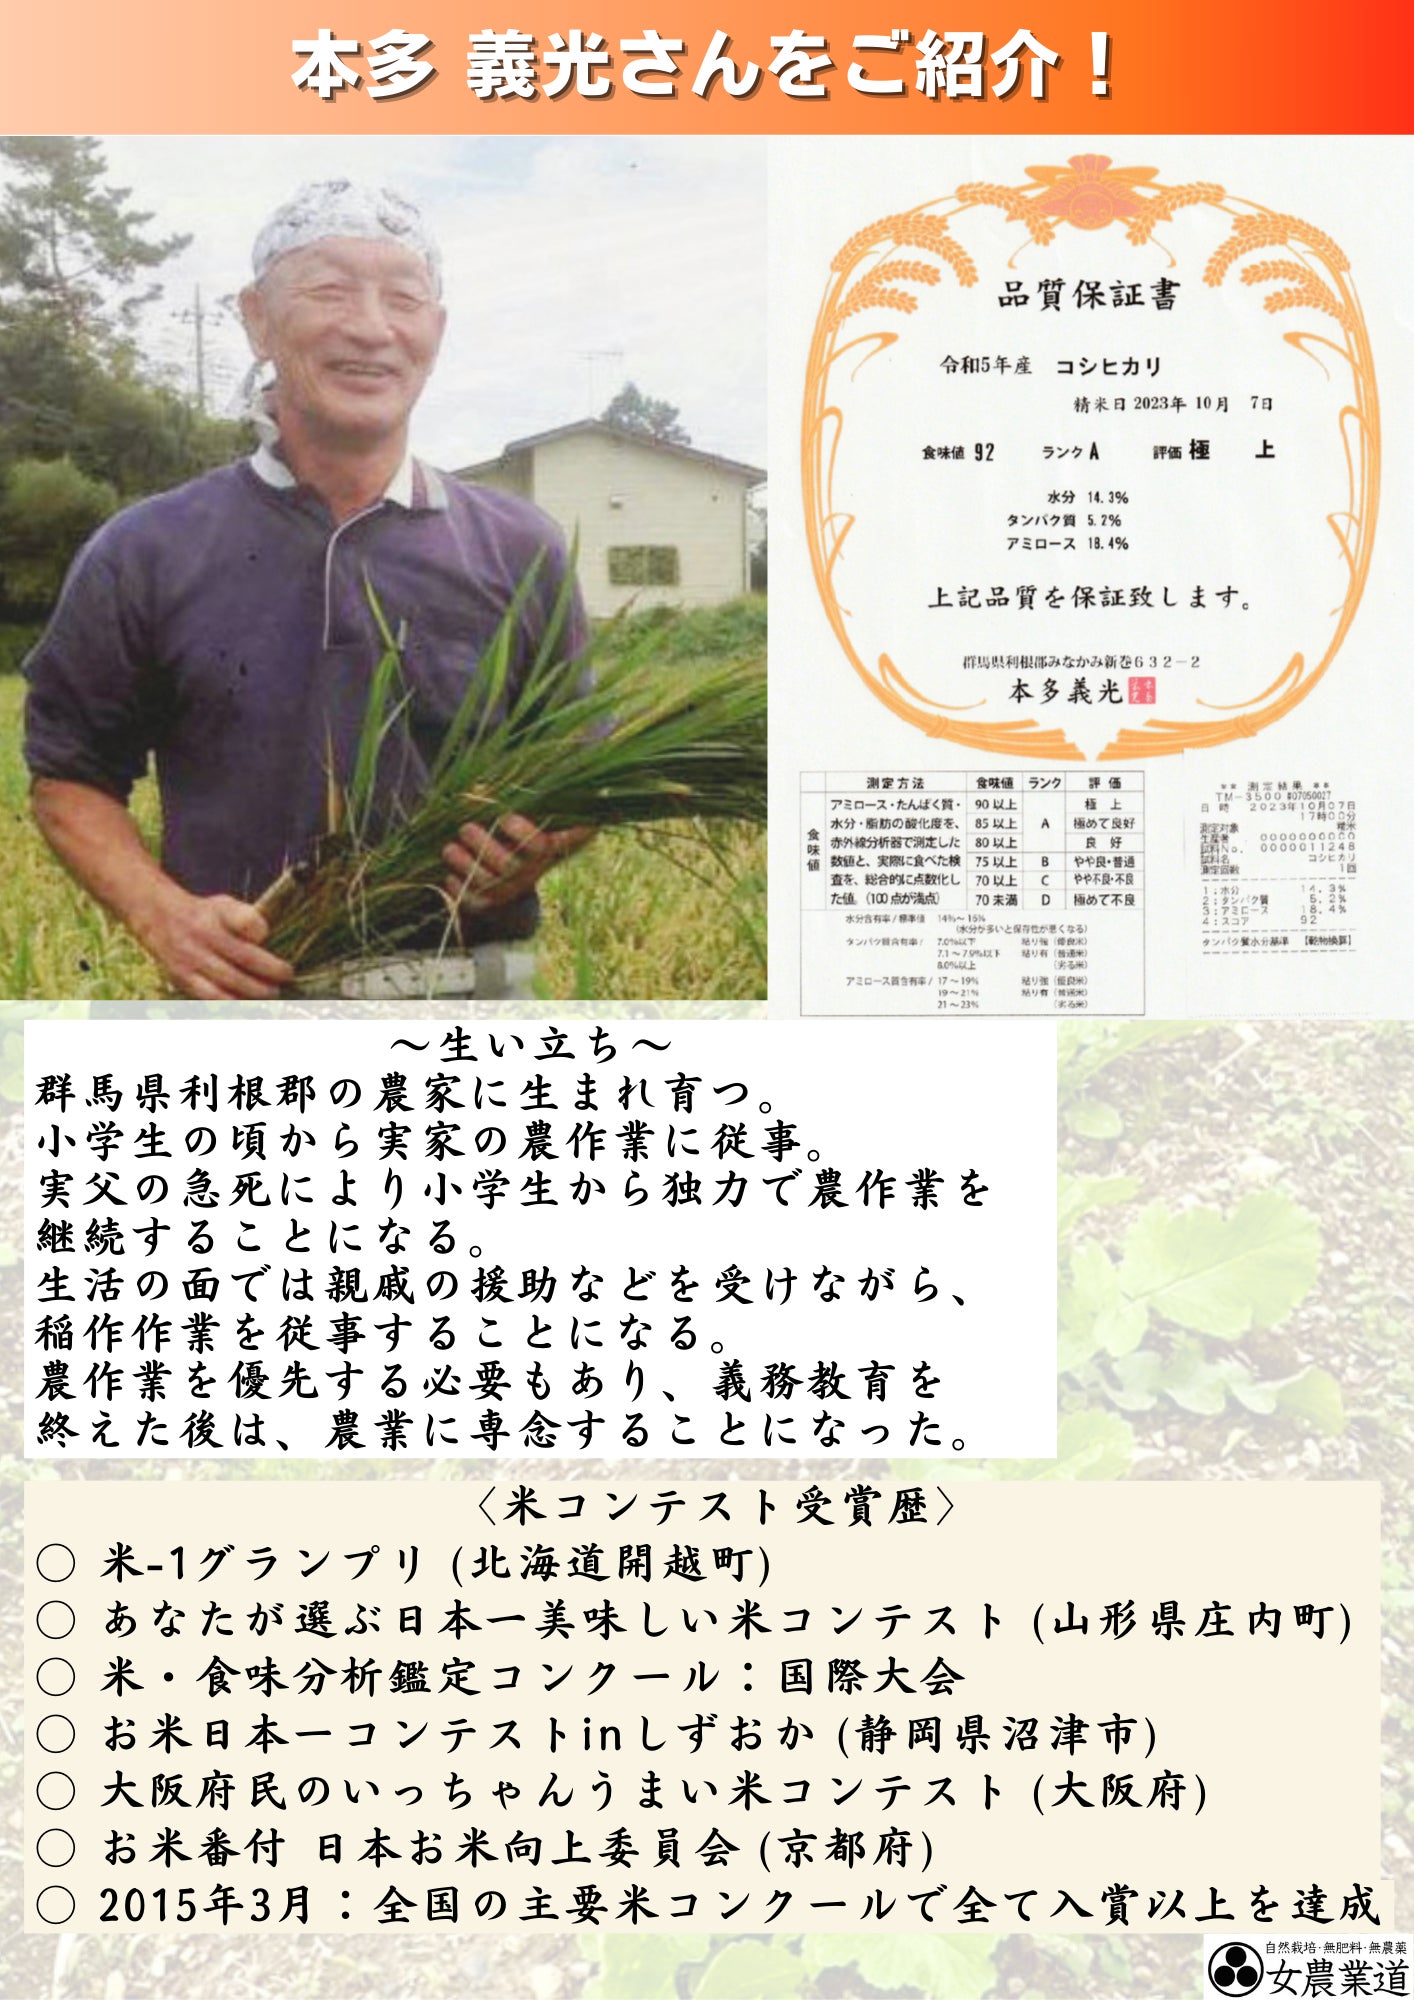 本多 義光さんをご紹介！
品質保証書
令和5年産 コシヒカリ
精米日 2023年 10月 7日
食味値 92 ランク A 評価 極 上
水分 14.3%
タンパク質 5.2%
アミロース 18.4%
上記品質を保証致します。
群馬県利根郡みなかみ新巻632-2
本多義光
測定方法 食味値 ランク 評価
食味値
アミロース・たんぱく質・ 90以上 極上
水分・脂肪の酸化度を、 85以上 A 極めて良好
赤外線分析器で測定した 80以上 良好
数値と、実際に食べた検 75以上 B やや良・普通
査を、総合的に点数化し 70以上 C やや不良・不良
た値。(100点が満点) 70未満 D 極めて不良
水分含有率/標準値 14%～16%
(水分が多いと保存性が悪くなる)
タンパク質含有率/ 7.0%以下 粘り強 (優良米)
7.1～7.9%以下 粘り有 (普通米)
8.0%以上 (劣る米)
アミロース質含有率/ 17～19% 粘り強 (優良米)
19～21% 粘り有 (普通米)
21～23% (劣る米)
** 測定結果 **
TM-3500 #07050027
日時 2023年10月07日
17時00分
測定対象 精米
生産者 0000000000
試料No. 0000011248
試料名 コシヒカリ
測定回数 1回
1:水分 14.3%
2:タンパク質 5.2%
3:アミロース 18.4%
4:スコア 92
タンパク質水分基準 【乾物換算】
～生い立ち～
群馬県利根郡の農家に生まれ育つ。
小学生の頃から実家の農作業に従事。
実父の急死により小学生から独力で農作業を
継続することになる。
生活の面では親戚の援助などを受けながら、
稲作作業を従事することになる。
農作業を優先する必要もあり、義務教育を
終えた後は、農業に専念することになった。
〈米コンテスト受賞歴〉
○ 米-1グランプリ (北海道開越町)
○ あなたが選ぶ日本一美味しい米コンテスト (山形県庄内町)
○ 米・食味分析鑑定コンクール：国際大会
○ お米日本一コンテストinしずおか (静岡県沼津市)
○ 大阪府民のいっちゃんうまい米コンテスト (大阪府)
○ お米番付 日本お米向上委員会 (京都府)
○ 2015年3月：全国の主要米コンクールで全て入賞以上を達成
自然栽培・無肥料・無農薬
女農業道